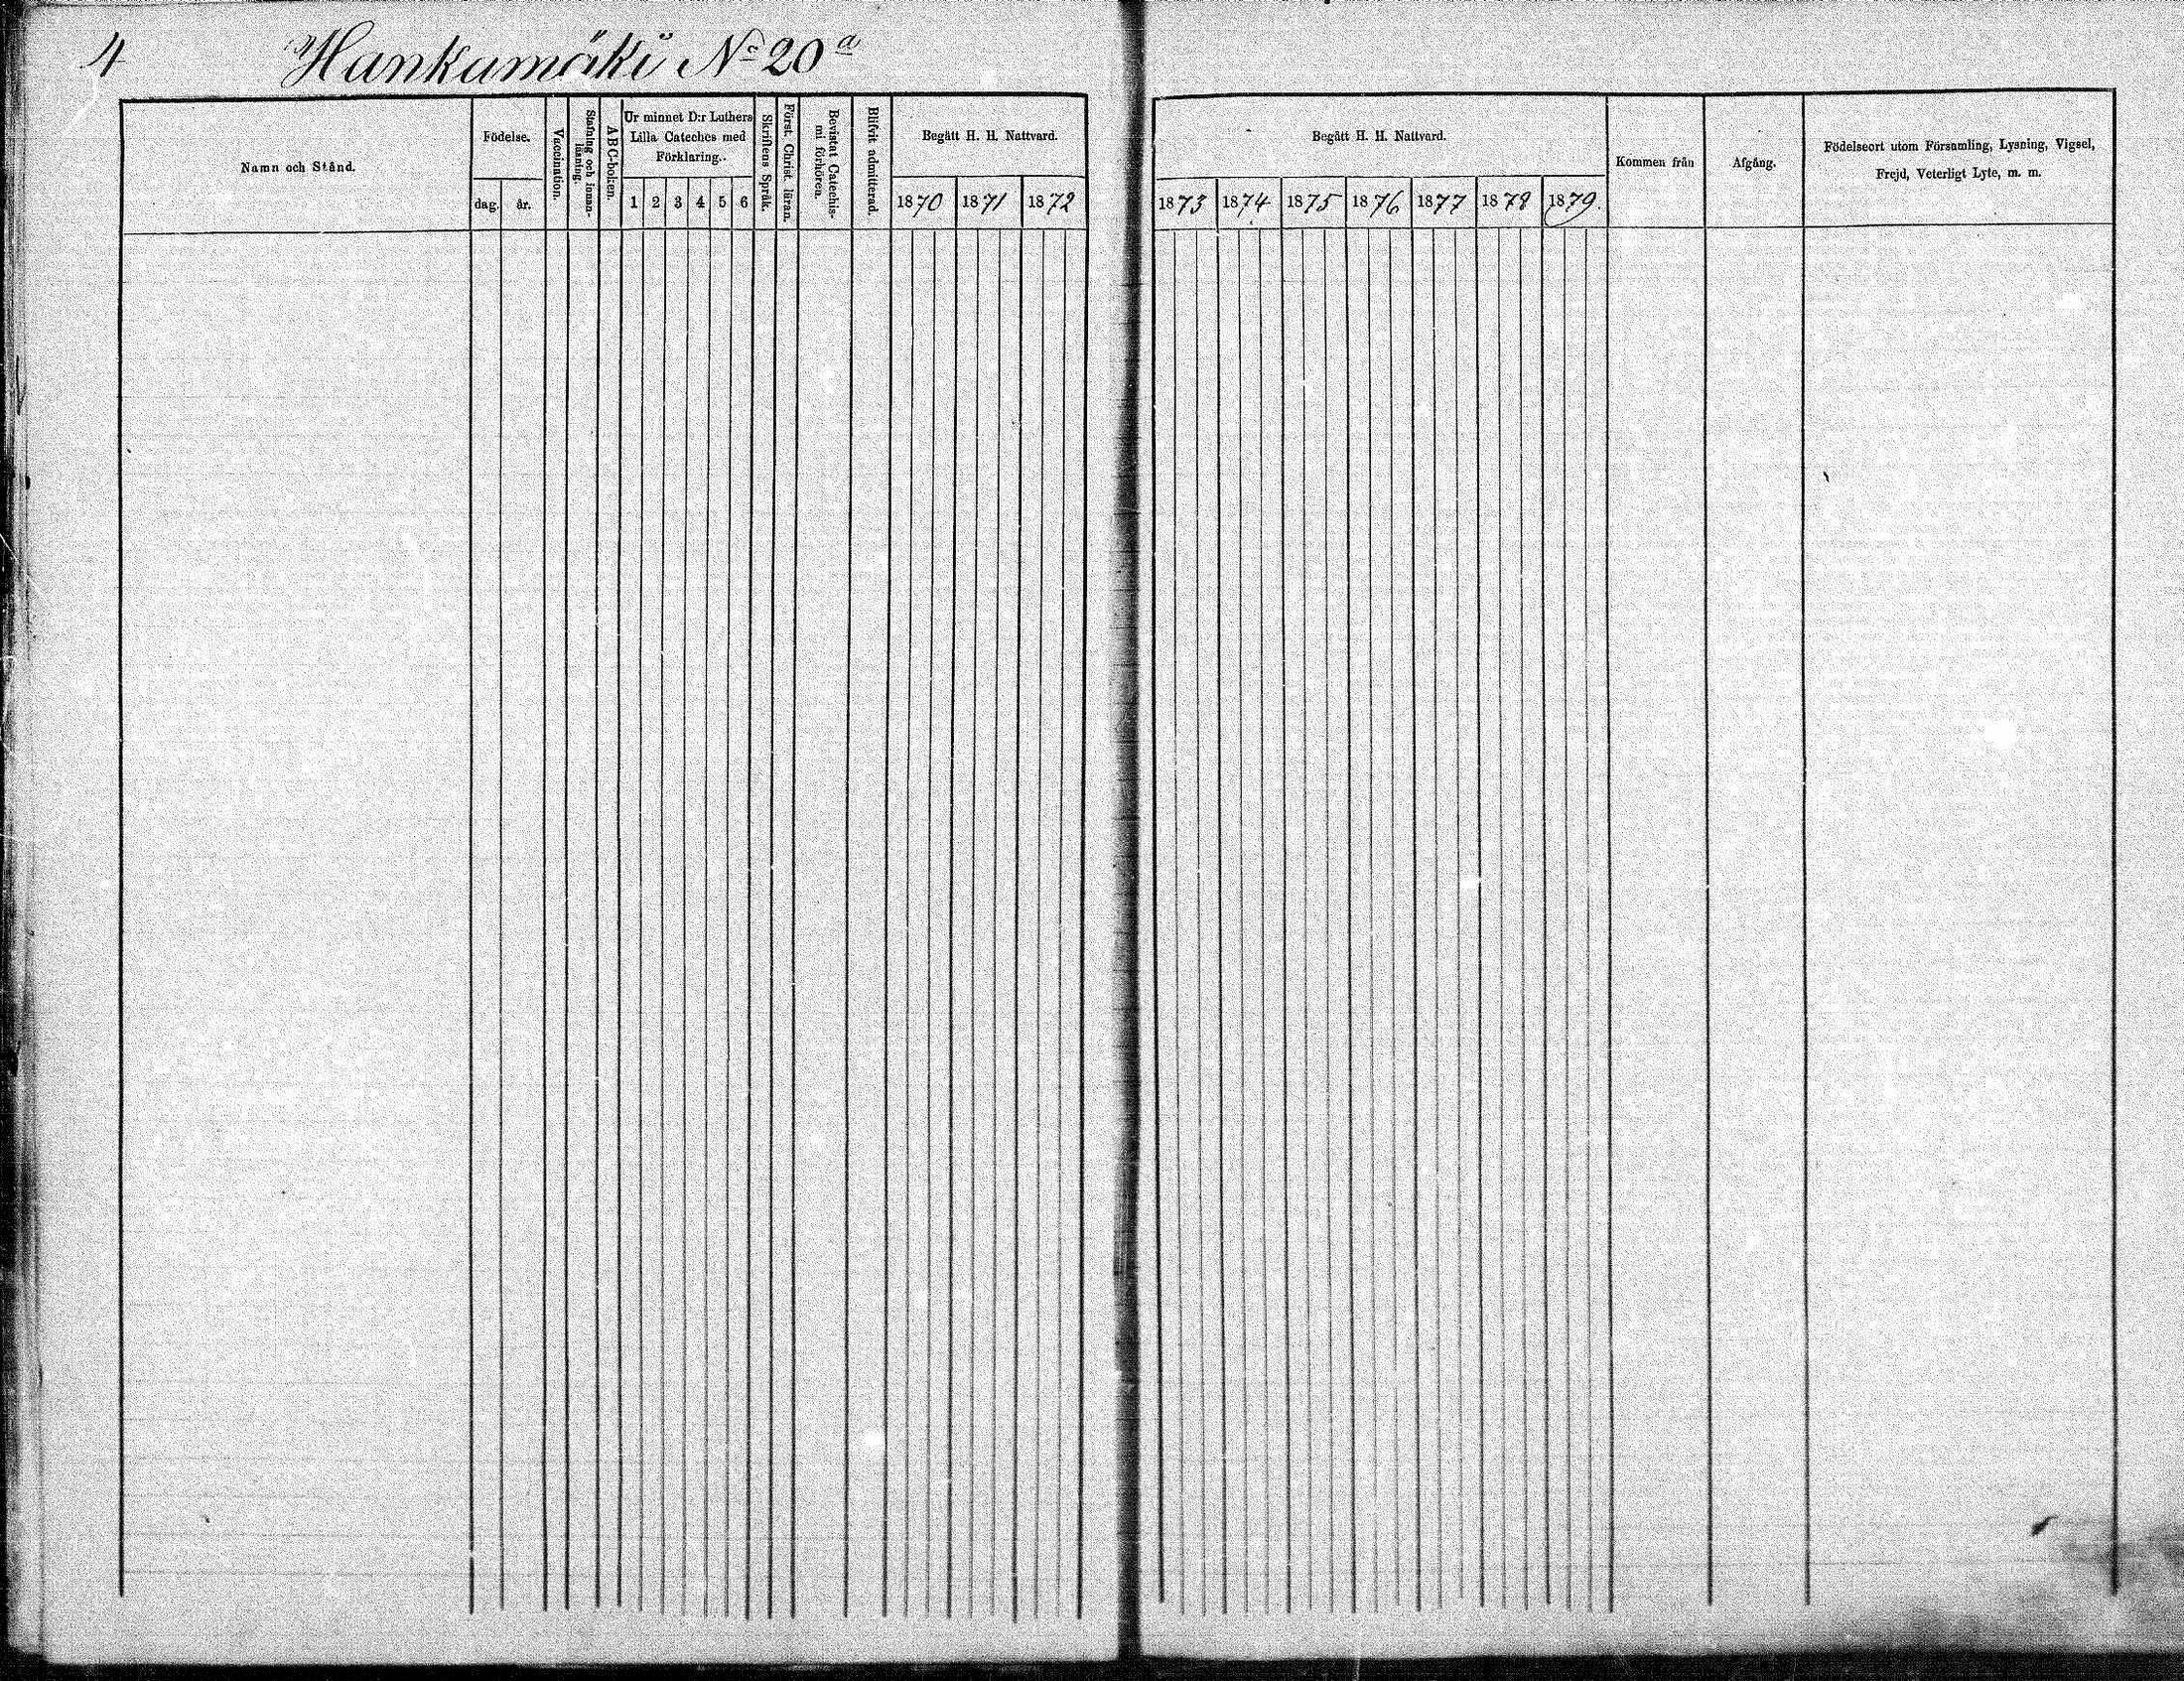 4 Hankamäki No 20 a
Namn och Stånd.
Födelse.
dag. år.
Vaccination.
Stafning och innan-
läsning.
ABC-boken.
Ur minnet D:r Luthers
Lilla Cateches med
Förklaring.
1 2 3 4 5 6
Skriftens Språk.
Först. Christ. läran.
Bevistat Catechis-
mi förhören.
Blifvit admitterad.
Begått H. H. Nattvard.
1870 1871 1872
Begått H. H. Nattvard.
1873 1874 1875 1876 1877 1878 1879.
Kommen från
Afgång.
Födelseort utom Församling, Lysning, Vigsel,
Frejd, Veterligt Lyte, m. m.